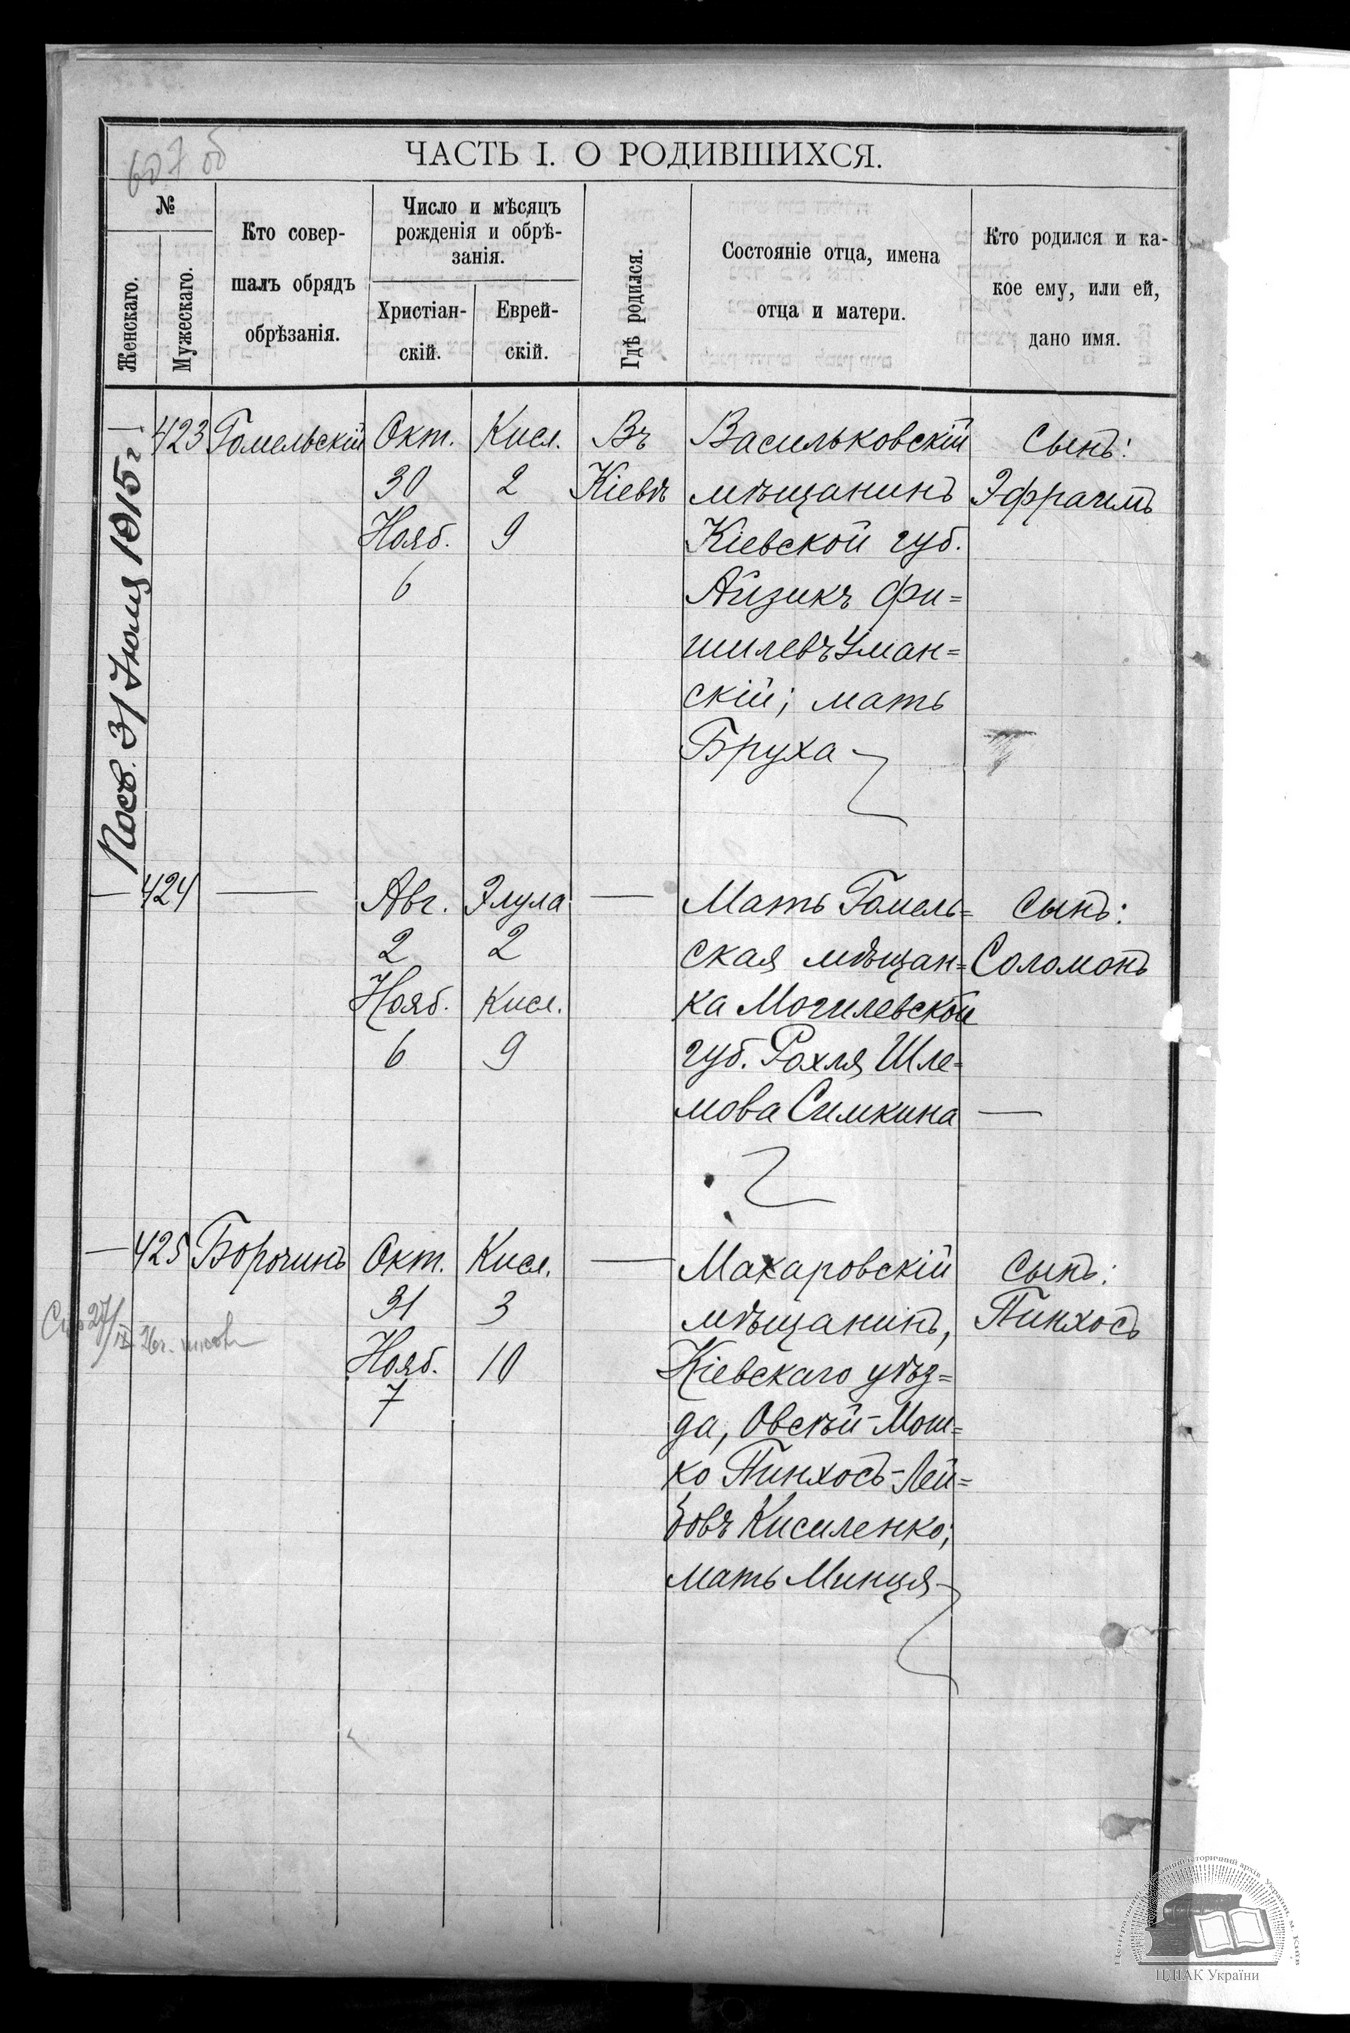 607 об
ЧАСТЬ I. О РОДИВШИХСЯ.
№
Женскаго.
Мужескаго.
Кто совер-
шалъ обрядъ
обрѣзанія.
Число и мѣсяцъ
рожденія и обрѣ-
занія.
Христіан-
скій.
Еврей-
скій.
Гдѣ родился.
Состояніе отца, имена
отца и матери.
Кто родился и ка-
кое ему, или ей,
дано имя.
31 Іюля 1915 г
423
Гомельскій
Окт.
30
Нояб.
6
Кисл.
2
9
Въ
Кіевѣ
Васильковскій
мѣщанинъ
Кіевской губ.
Айзикъ Фи=
шилевъ Уман=
скій; мать
Бруха
сынъ:
Эфраимъ
— 424
—
Авг.
2
Нояб.
6
Элула
2
Кисл.
9
—
Мать Гомель=
ская мѣщан=
ка Могилевской
губ. Рохля Шле=
мова Симкина
сынъ:
Соломонъ
—
— 425
Борочинъ
Окт.
31
Нояб.
7
Кисл.
3
10
—
Макаровскій
мѣщанинъ,
Кіевскаго уѣз=
да, Овсѣй-Мош=
ко Пинхосъ-Лей=
бовъ Кисиленко;
мать Минця
сынъ:
Пинхосъ
ЦДІАК України